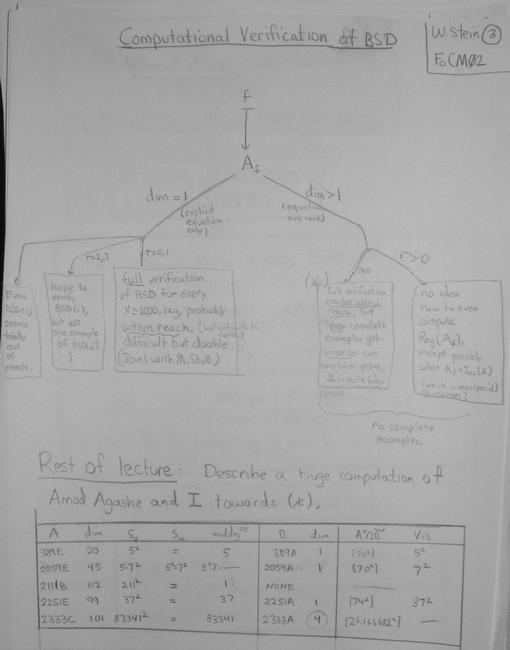 Computational Verification of BSD
W. Stein ③
FoCM02
f
A_f
dim = 1
(explicit
equation
easy)
dim > 1
(equation
are rare)
r=2,3
r=0,1
r=0
r>0
Even
BSD(i)
seems
totally
out
of
reach.
hope to
verify
BSD(i),
but not
one example
of BSD(ii)
!
full verification
of BSD for every
N≤1000, say, probably
within reach.
difficult but doable
(Joint with M. Stoll.)
(*)
full verification
maybe within
reach, but
new complete
examples yet.
can
sometimes prove
is quite big.
no idea
how to even
compute
Reg(A_f),
except possibly
when A_f = Jac(X)
no complete
examples.
Rest of lecture: Describe a huge computation of
Amod Agashe and I towards (*).
A dim S_l S_u moddeg^op B dim A^∨∩B^∨ Vis
389E 20 5² = 5 389A 1 [20²] 5²
2059E 45 5·7² = 2059A 1 7²
211B 112 211² = 1 NONE
2251E 99 37² = 37 2251A 1 [74²] 37²
2333C 101 83341² = 83341 2333A 4 —